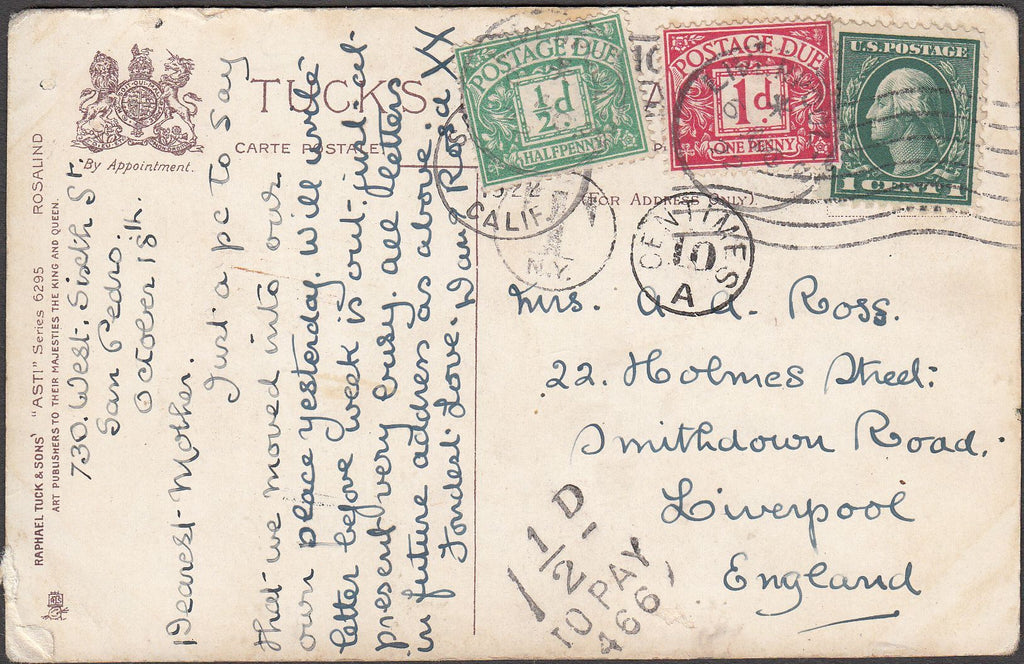 RAPHAEL TUCK & SONS' "ASTI" Series 6295 ROSALIND
ART PUBLISHERS TO THEIR MAJESTIES THE KING AND QUEEN.
By Appointment.
TUCK'S
CARTE POSTALE
(FOR ADDRESS ONLY).
730. West. Sixth St.
San Pedro.
October 18th.
Dearest Mother.
Just a pc to say
that we moved into our
own place yesterday. Will write
letter before week is out. just at
present very busy. all letters
in future address as above.
Fondest Love. Wand Rosa XX
POSTAGE DUE
½d
HALFPENNY
POSTAGE DUE
1d.
ONE PENNY
U.S. POSTAGE
1 CENT 1
1922
CALIF.
N.Y.
CENTIMES
10
A
Mrs. A. A. Ross.
22. Holmes Street:
Smithdown Road.
Liverpool
England
1½D
TO PAY
466